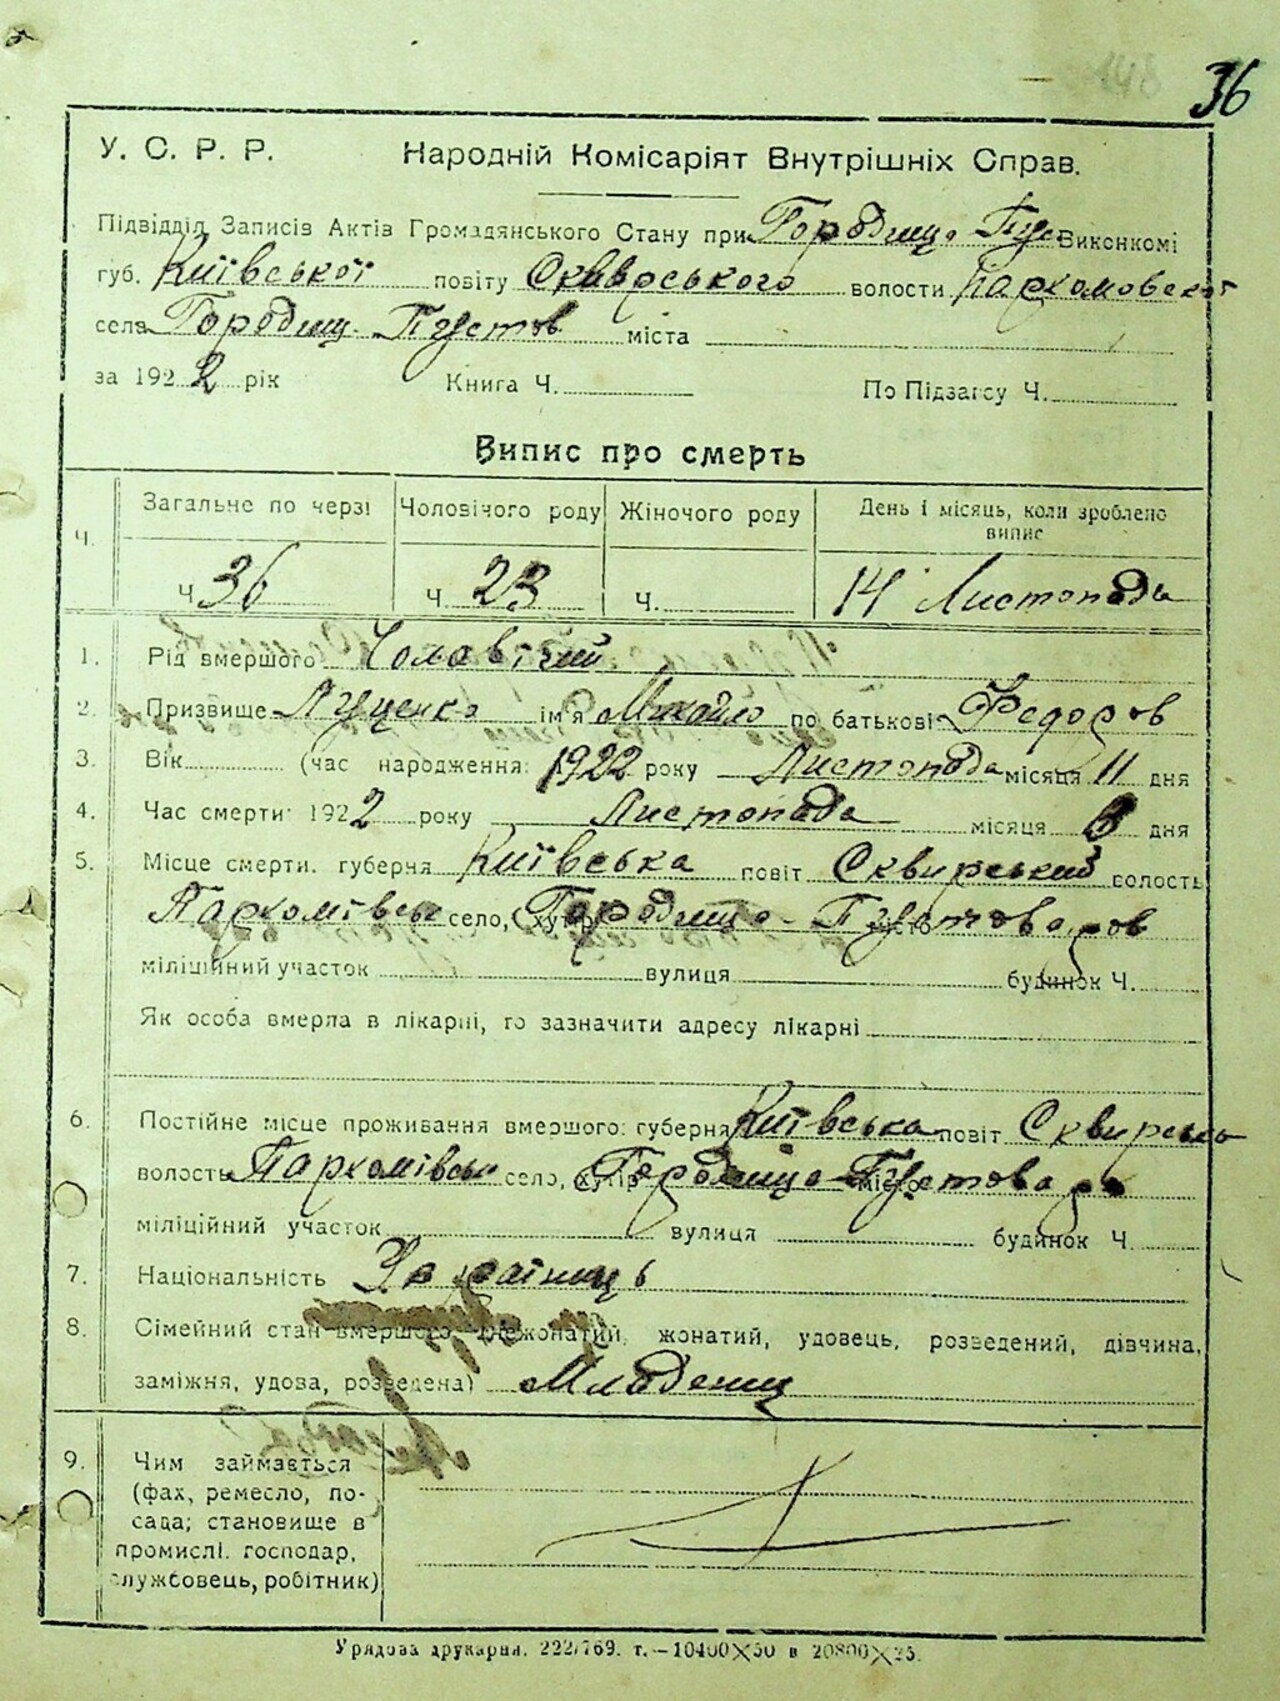 36
У. С. Р. Р. Народній Комісаріят Внутрішніх Справ.
Підвідділ Записів Актів Громадянського Стану при Городище Пус Виконкомі
губ. Київської повіту Сквирського волости Пархомовской
села Городищ. Пустов міста
за 1922 рік Книга Ч. По Підзагсу Ч.
Випис про смерть
Ч. Загальне по черзі Чоловічого роду Жіночого роду День і місяць, коли зроблено
випис
Ч 36 Ч 23 Ч. 14 Листопада
1. Рід вмершого Чоловічий
2. Призвище Луценко ім'я Михайло по батькові Федоров
3. Вік (час народження: 1922 року Листопада місяця 11 дня
4. Час смерти: 1922 року Листопада місяця дня
5. Місце смерти. губерня Київська повіт Сквирський волость
Пархомівськ село, (хутір Городище-Пустоваров місто
міліційний участок вулиця будинок Ч.
Як особа вмерла в лікарні, то зазначити адресу лікарні
6. Постійне місце проживання вмершого: губерня Київська повіт Сквирськ
волость Пархомівськ село, (хутір Городище-Пустовар місто
міліційний участок вулиця будинок Ч.
7. Національність Українець
8. Сімейний стан вмершого (нежонатий, жонатий, удовець, розведений, дівчина,
заміжня, удова, розведена) Младенец
9. Чим займається
(фах, ремесло, по-
сада; становище в
промислі. господар,
службовець, робітник)
Урядова друкарня. 222/769. т.—10400×50 в 20800×25.